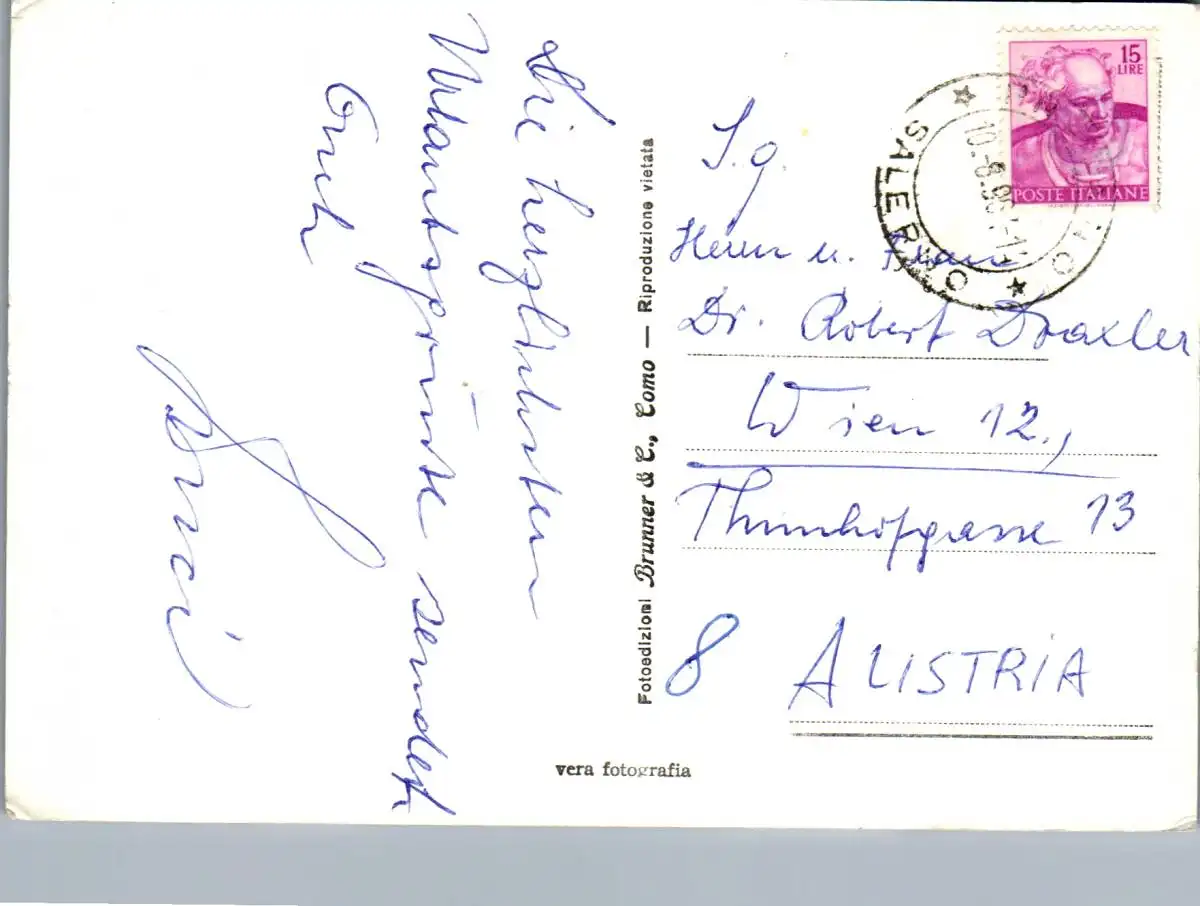 Die herzlichsten
Urlaubsgrüsse sendet
Euch
Fotoedizioni Brunner & C., Como — Riproduzione vietata
vera fotografia
15
LIRE
POSTE ITALIANE
SALERNO
S. g.
Herrn u. Frau
Dr. Robert Draxler
Wien 12.,
Thunhofgasse 13
8 AUSTRIA